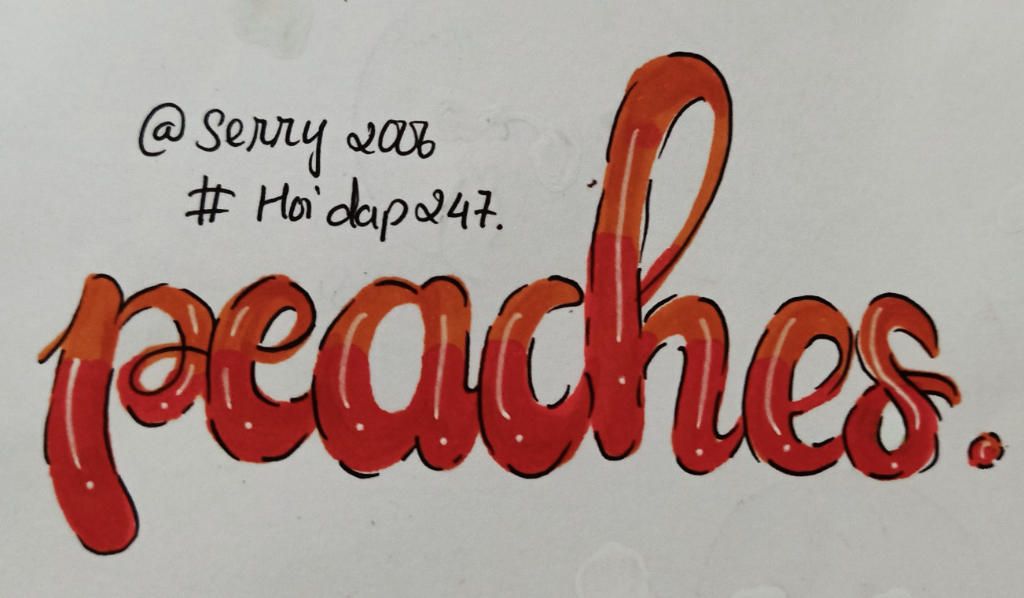 @serry 2006
# Hoidap247.
peaches.